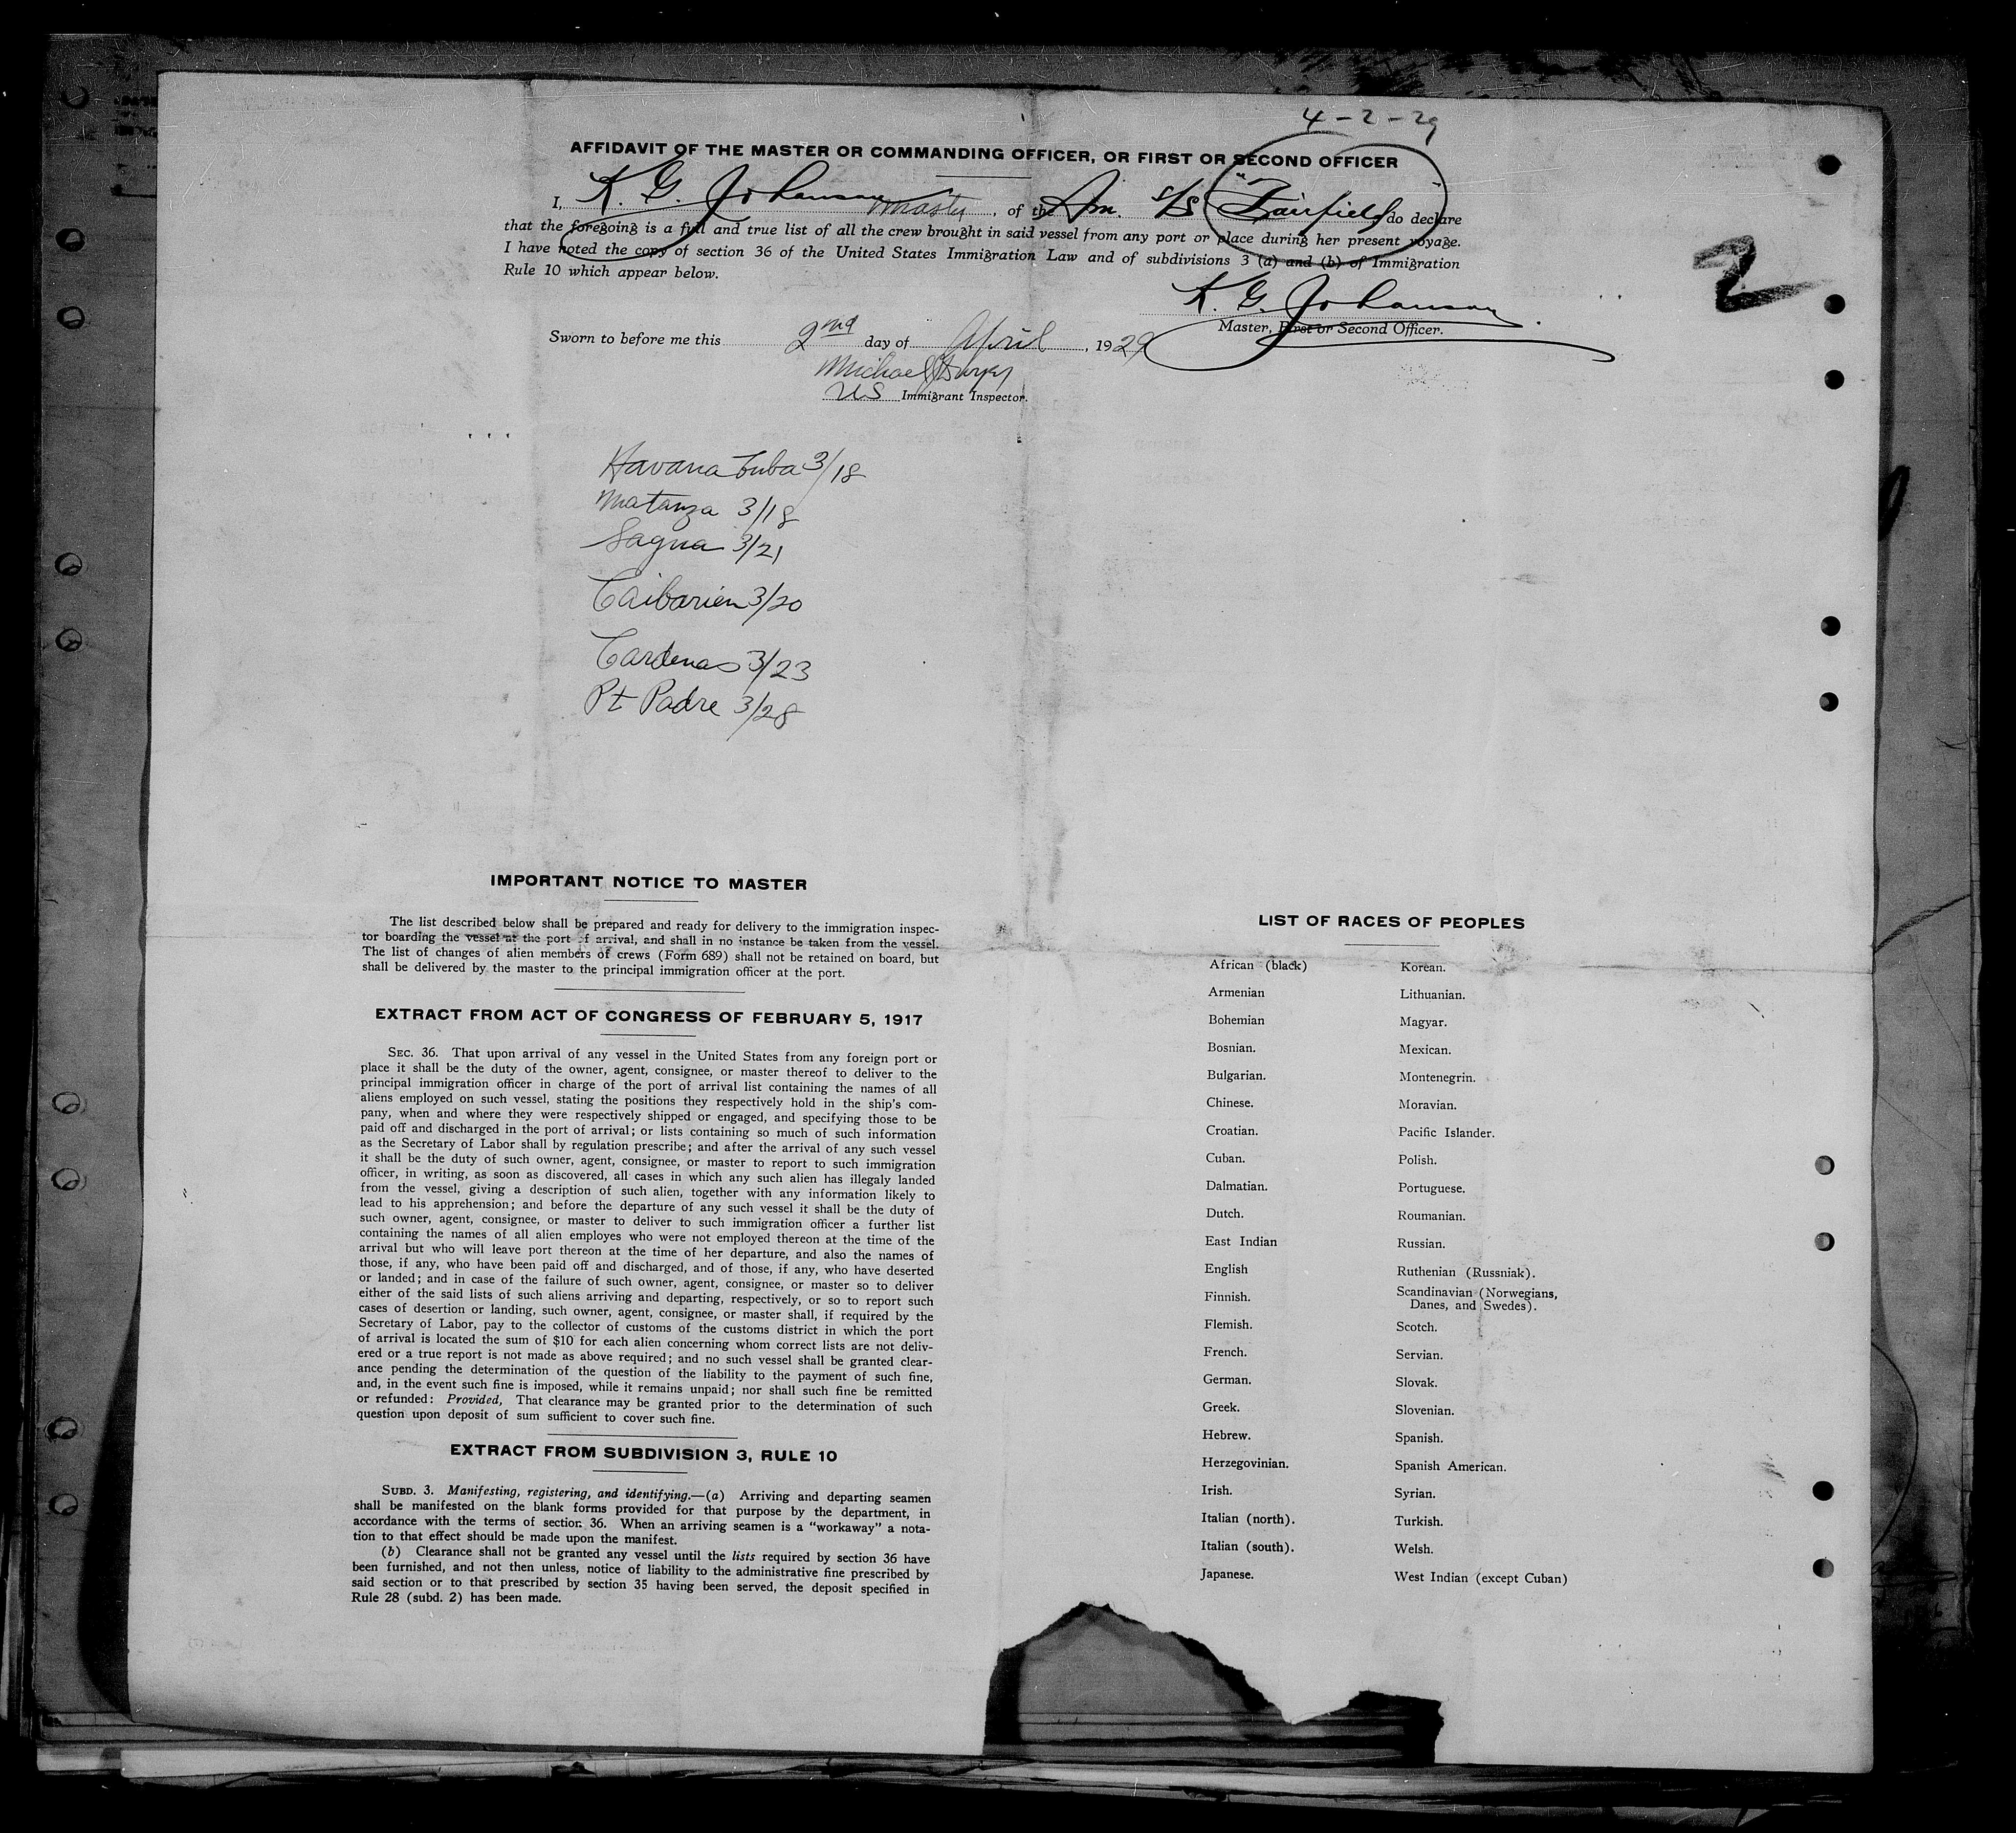 4-2-29
AFFIDAVIT OF THE MASTER OR COMMANDING OFFICER, OR FIRST OR SECOND OFFICER
I, K. G. Johanson Master, of the Am. S/S "Fairfield" do declare
that the foregoing is a full and true list of all the crew brought in said vessel from any port or place during her present voyage.
I have noted the copy of section 36 of the United States Immigration Law and of subdivisions 3 (a) and (b) of Immigration
Rule 10 which appear below.
2
K. G. Johanson
Master, First or Second Officer.
Sworn to before me this 2nd day of April, 1929
Michael
US Immigrant Inspector.
Havana Cuba 3/18
Matanza 3/18
Sagua 3/21
Caibarien 3/20
Cardenas 3/23
Pt Padre 3/28
IMPORTANT NOTICE TO MASTER
The list described below shall be prepared and ready for delivery to the immigration inspec-
tor boarding the vessel at the port of arrival, and shall in no instance be taken from the vessel.
The list of changes of alien members of crews (Form 689) shall not be retained on board, but
shall be delivered by the master to the principal immigration officer at the port.
EXTRACT FROM ACT OF CONGRESS OF FEBRUARY 5, 1917
SEC. 36. That upon arrival of any vessel in the United States from any foreign port or
place it shall be the duty of the owner, agent, consignee, or master thereof to deliver to the
principal immigration officer in charge of the port of arrival list containing the names of all
aliens employed on such vessel, stating the positions they respectively hold in the ship's com-
pany, when and where they were respectively shipped or engaged, and specifying those to be
paid off and discharged in the port of arrival; or lists containing so much of such information
as the Secretary of Labor shall by regulation prescribe; and after the arrival of any such vessel
it shall be the duty of such owner, agent, consignee, or master to report to such immigration
officer, in writing, as soon as discovered, all cases in which any such alien has illegaly landed
from the vessel, giving a description of such alien, together with any information likely to
lead to his apprehension; and before the departure of any such vessel it shall be the duty of
such owner, agent, consignee, or master to deliver to such immigration officer a further list
containing the names of all alien employes who were not employed thereon at the time of the
arrival but who will leave port thereon at the time of her departure, and also the names of
those, if any, who have been paid off and discharged, and of those, if any, who have deserted
or landed; and in case of the failure of such owner, agent, consignee, or master so to deliver
either of the said lists of such aliens arriving and departing, respectively, or so to report such
cases of desertion or landing, such owner, agent, consignee, or master shall, if required by the
Secretary of Labor, pay to the collector of customs of the customs district in which the port
of arrival is located the sum of $10 for each alien concerning whom correct lists are not deliv-
ered or a true report is not made as above required; and no such vessel shall be granted clear-
ance pending the determination of the question of the liability to the payment of such fine,
and, in the event such fine is imposed, while it remains unpaid; nor shall such fine be remitted
or refunded: Provided, That clearance may be granted prior to the determination of such
question upon deposit of sum sufficient to cover such fine.
EXTRACT FROM SUBDIVISION 3, RULE 10
SUBD. 3. Manifesting, registering, and identifying.—(a) Arriving and departing seamen
shall be manifested on the blank forms provided for that purpose by the department, in
accordance with the terms of section 36. When an arriving seamen is a "workaway" a nota-
tion to that effect should be made upon the manifest.
(b) Clearance shall not be granted any vessel until the lists required by section 36 have
been furnished, and not then unless, notice of liability to the administrative fine prescribed by
said section or to that prescribed by section 35 having been served, the deposit specified in
Rule 28 (subd. 2) has been made.
LIST OF RACES OF PEOPLES
African (black)
Armenian
Bohemian
Bosnian.
Bulgarian.
Chinese.
Croatian.
Cuban.
Dalmatian.
Dutch.
East Indian
English
Finnish.
Flemish.
French.
German.
Greek.
Hebrew.
Herzegovinian.
Irish.
Italian (north).
Italian (south).
Japanese.
Korean.
Lithuanian.
Magyar.
Mexican.
Montenegrin.
Moravian.
Pacific Islander.
Polish.
Portuguese.
Roumanian.
Russian.
Ruthenian (Russniak).
Scandinavian (Norwegians,
Danes, and Swedes).
Scotch.
Servian.
Slovak.
Slovenian.
Spanish.
Spanish American.
Syrian.
Turkish.
Welsh.
West Indian (except Cuban)